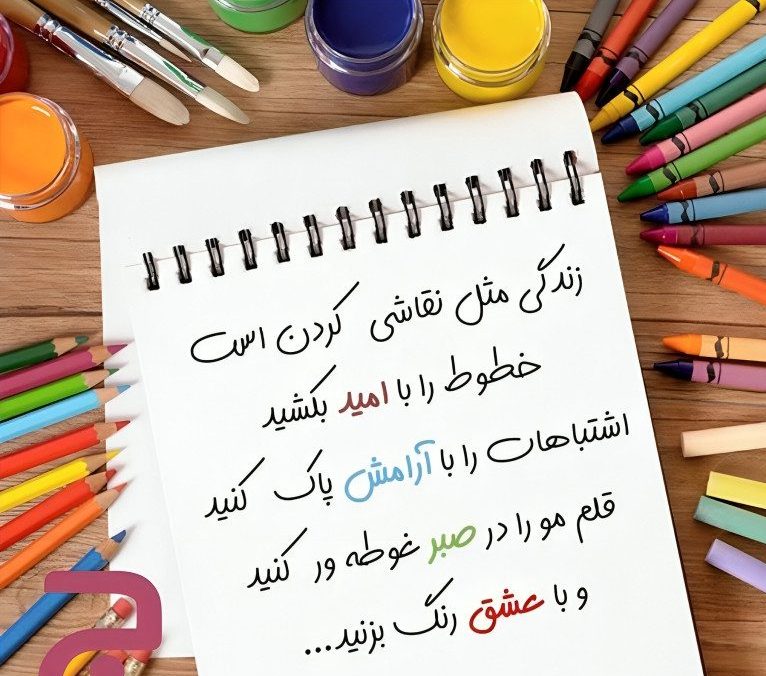 زندگی مثل نقاشی کردن است
خطوط را با امید بکشید
اشتباهات را با آرامش پاک کنید
قلم مو را در صبر غوطه ور کنید
و با عشق رنگ بزنید...